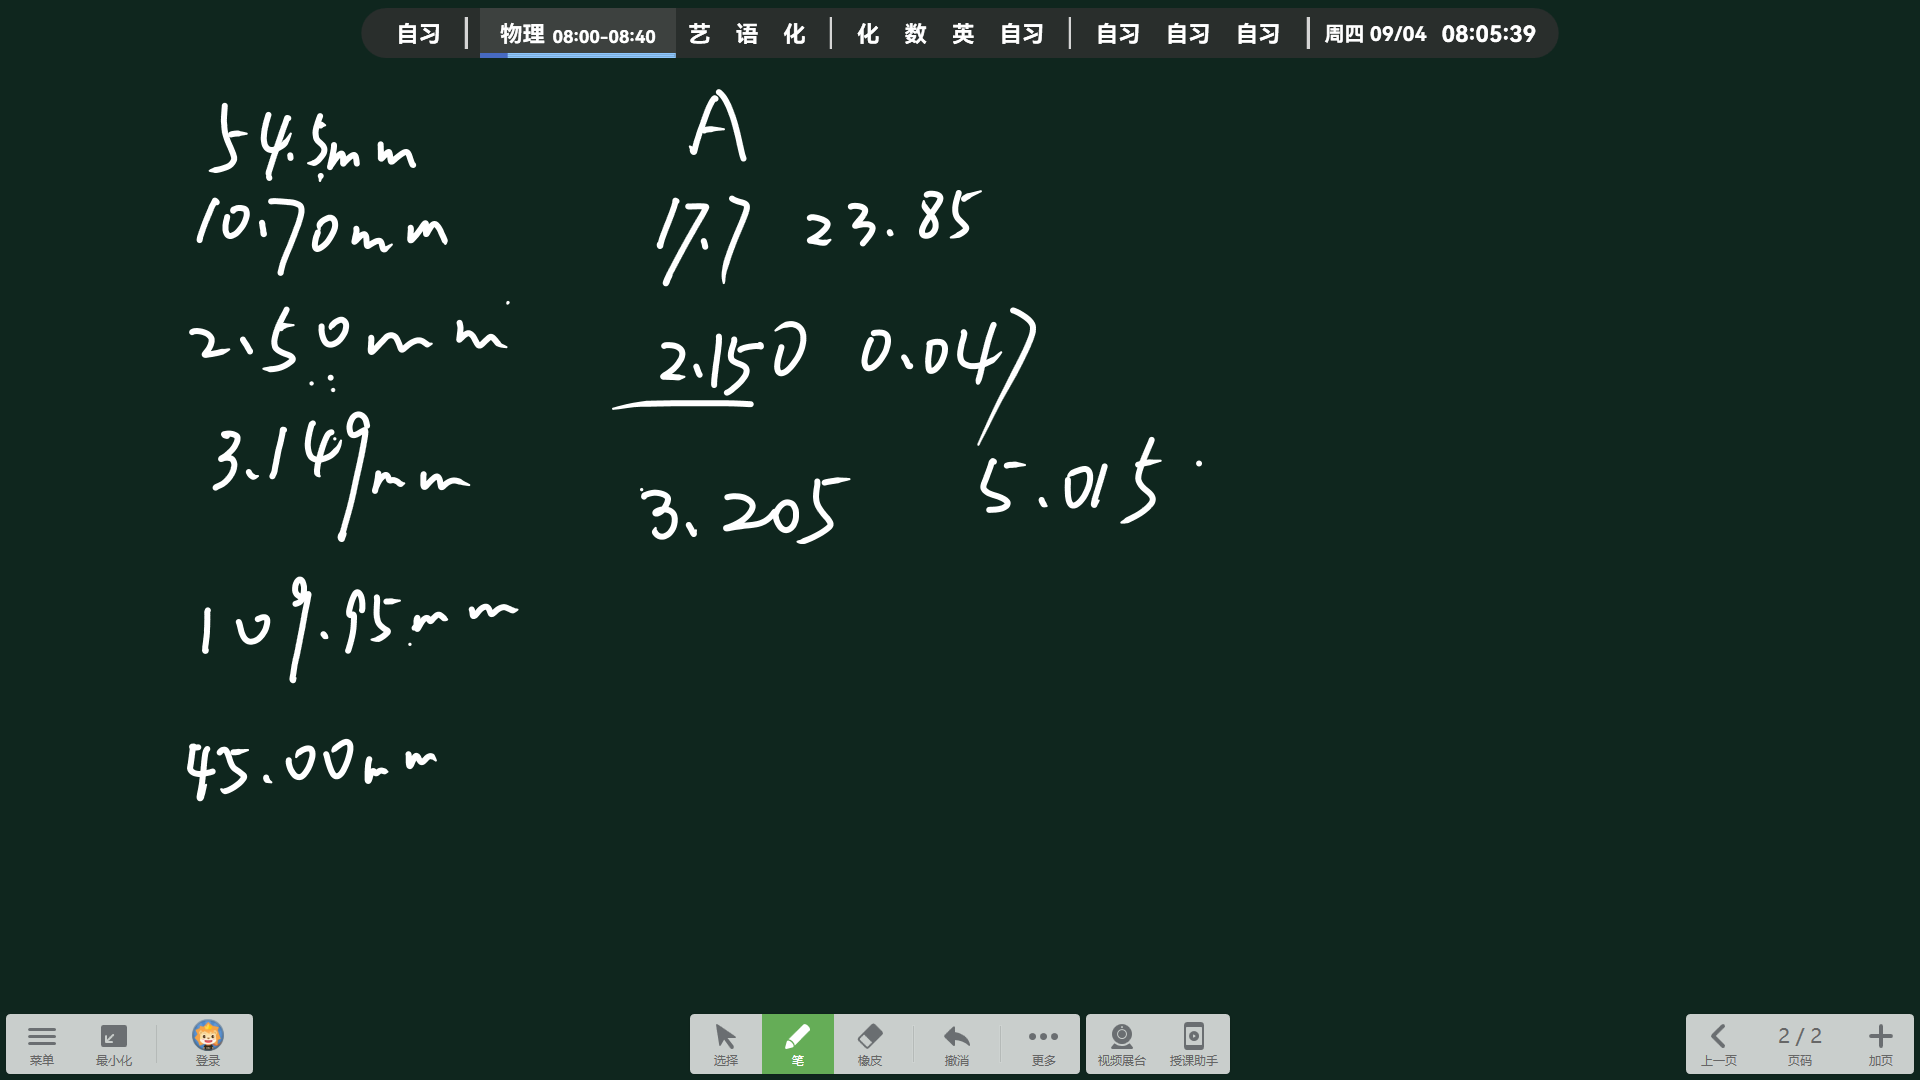 自习 | 物理 08:00-08:40 艺 语 化 | 化 数 英 自习 | 自习 自习 自习 | 周四 09/04 08:05:39
54.5mm
10.70mm
2.50mm
3.149mm
109.95mm
45.00mm
A
17.7 23.85
2.150 0.047
3.205 5.015
菜单 最小化 登录
选择 笔 橡皮 撤消 更多
视频展台 授课助手
上一页 2 / 2 页码 加页